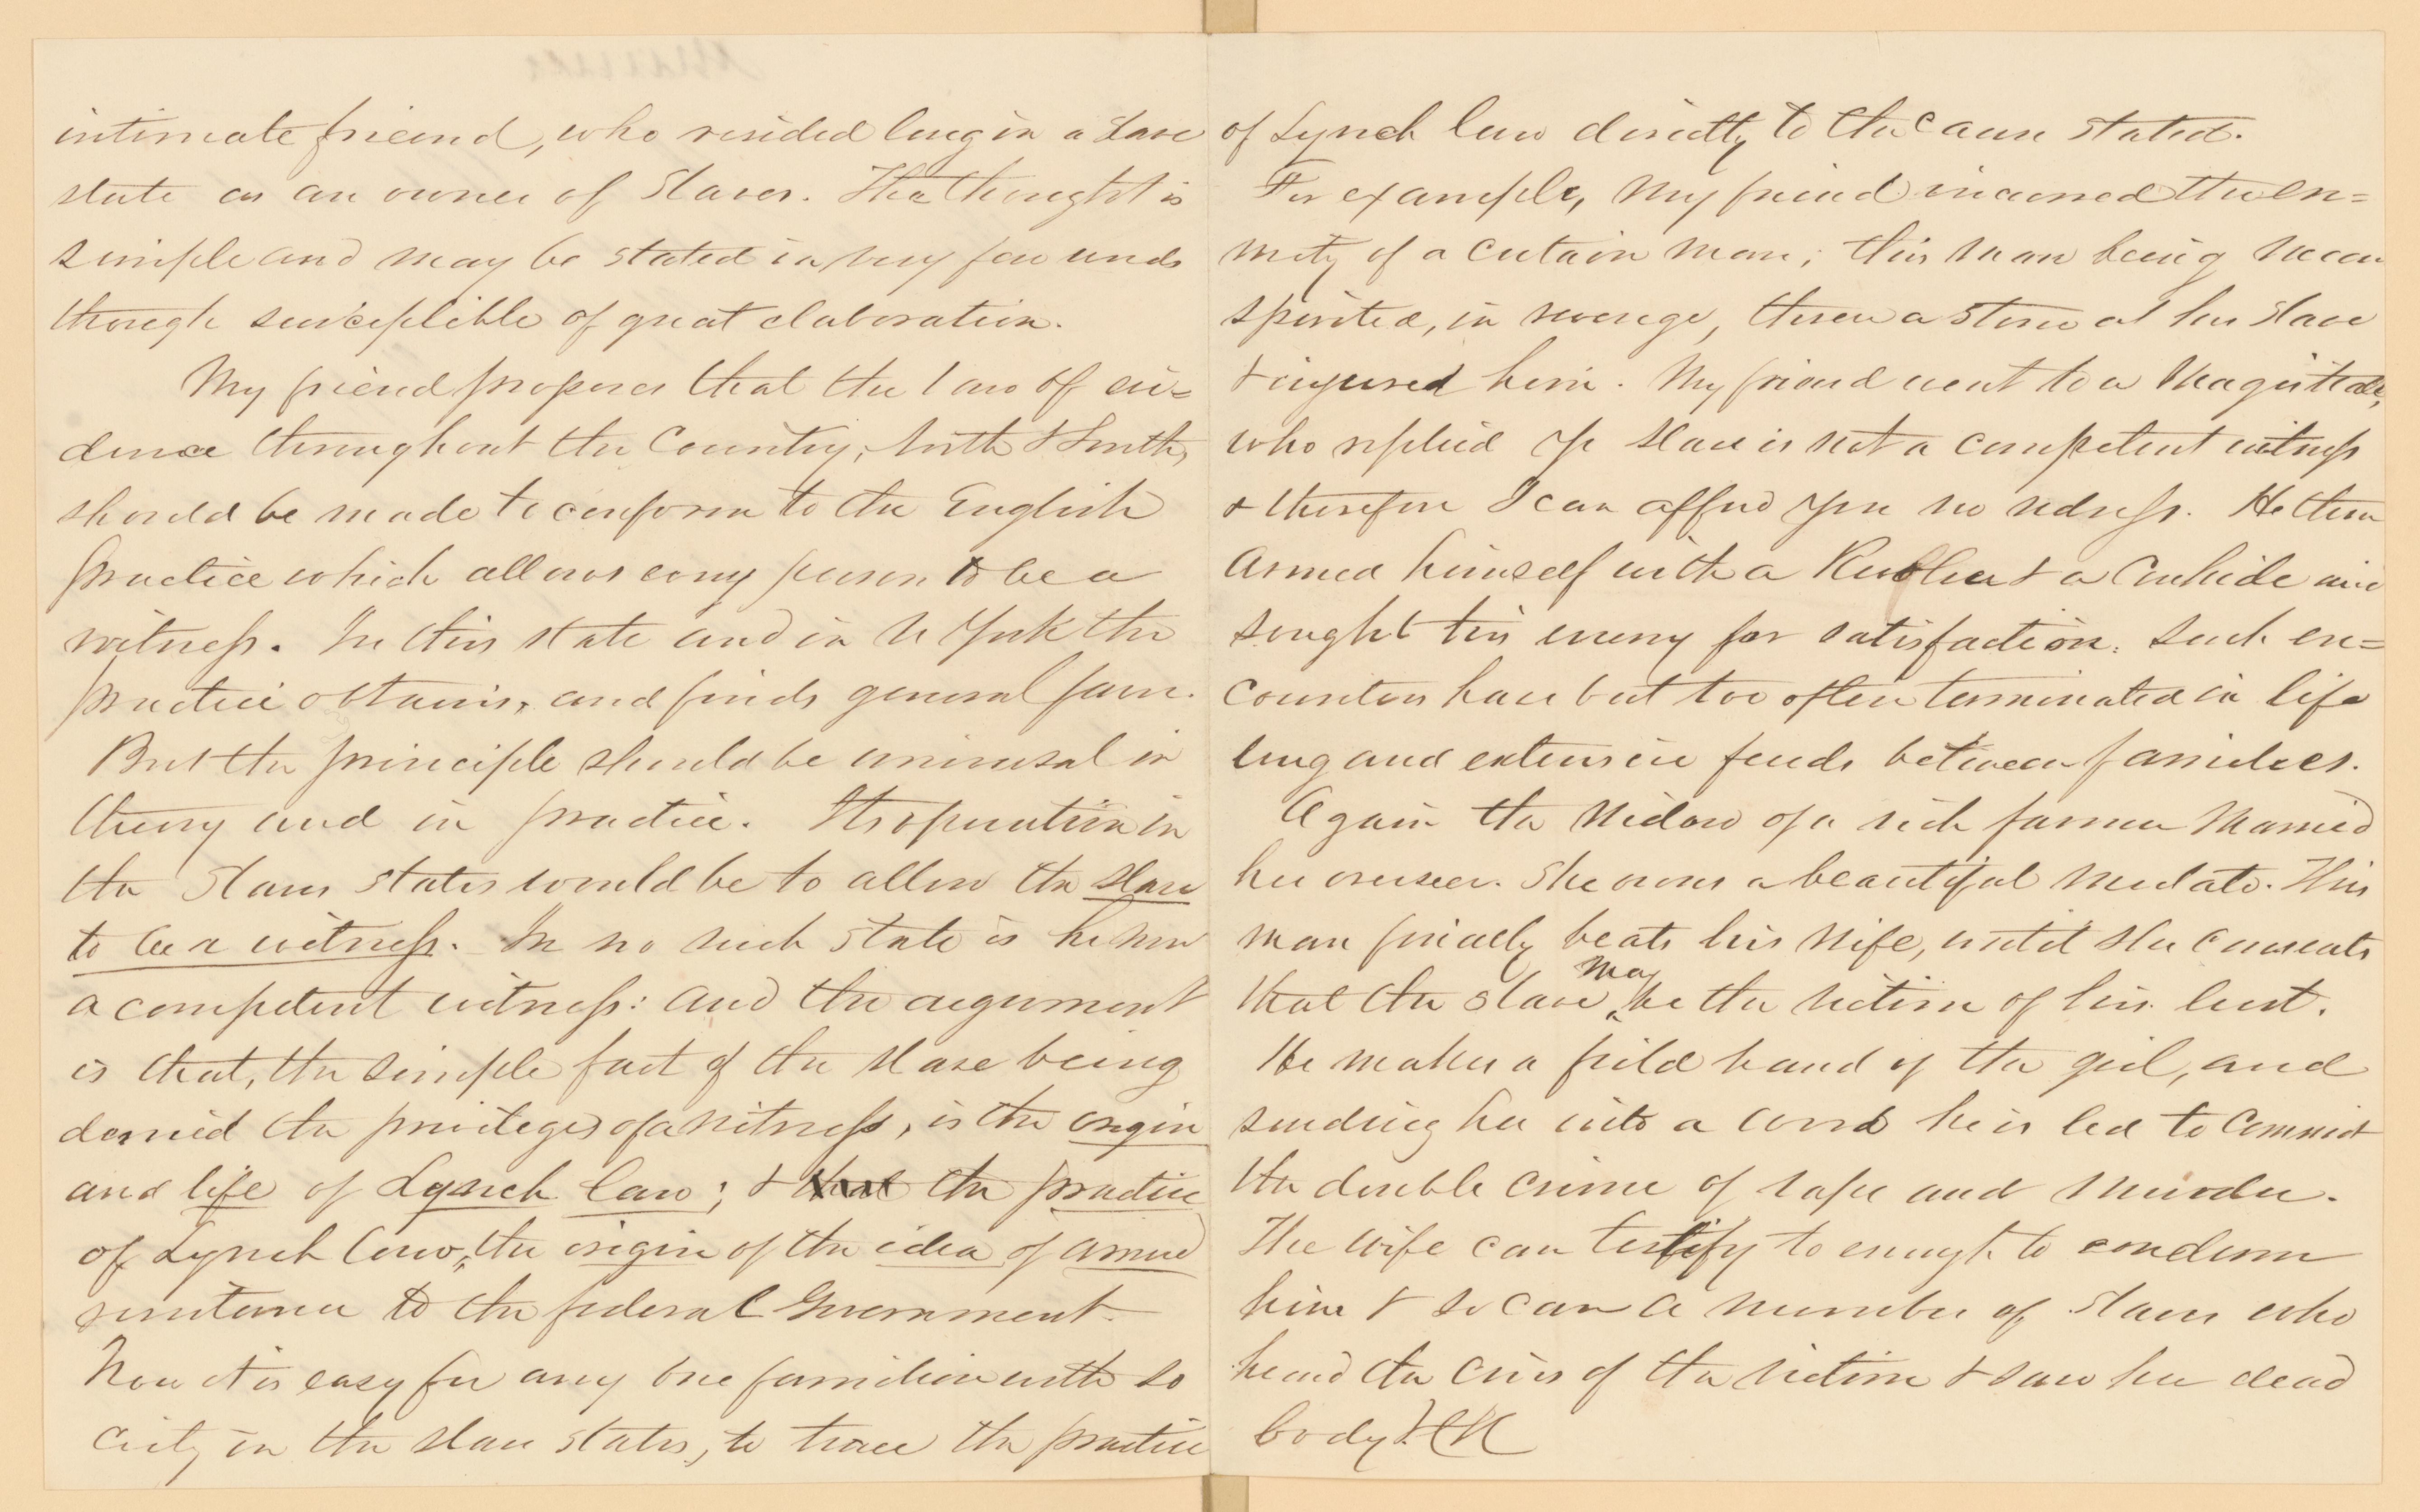 intimate friend, who resided long in a slave
state as an owner of slaves. The thought is
simple and may be stated in very few words
though susceptible of great elaboration.
My friend proposes that the law of evi=
dence throughout the Country, North & South,
should be made to conform to the English
practice which allows every person to be a
witness. In this state and in N York the
practice obtains, and finds general favor.
But the principle should be universal in
theory and in practice. Its operation in
the Slave states would be to allow the slave
to be a witness. In no such state is he now
a competent witness: and the argument
is that, the simple fact of the slave being
denied the privileges of a witness, is the origin
and life of Lynch law; & that the practice
of Lynch law, the origin of the idea of armed
resistance to the federal Government.
Now it is easy for any one familiar with so
ciety in the slave states, to trace the practice
of Lynch law directly to the cause stated.
For example, My friend incurred the en=
mity of a certain man; this man being mean
spirited, in revenge, threw a stone at his slave
& injured him. My friend went to a Magistrate,
who replied Yr slave is not a competent witness
& therefore I can afford you no redress. He then
armed himself with a Revolver & a Cowhide and
sought his enemy for satisfaction. Such en=
counters have but too often terminated in life
long and extensive feuds between families.
Again the widow of a rich farmer married
her overseer. She owns a beautiful mulato. This
man finally beats his wife, until she consents
that the slave may be the victim of his lust.
He makes a field hand of the girl, and
sending her into a wood he is led to commit
the double crime of rape and murder.
The wife can testify to enough to condemn
him & so can a number of slaves who
heard the cries of the victim & saw her dead
body.